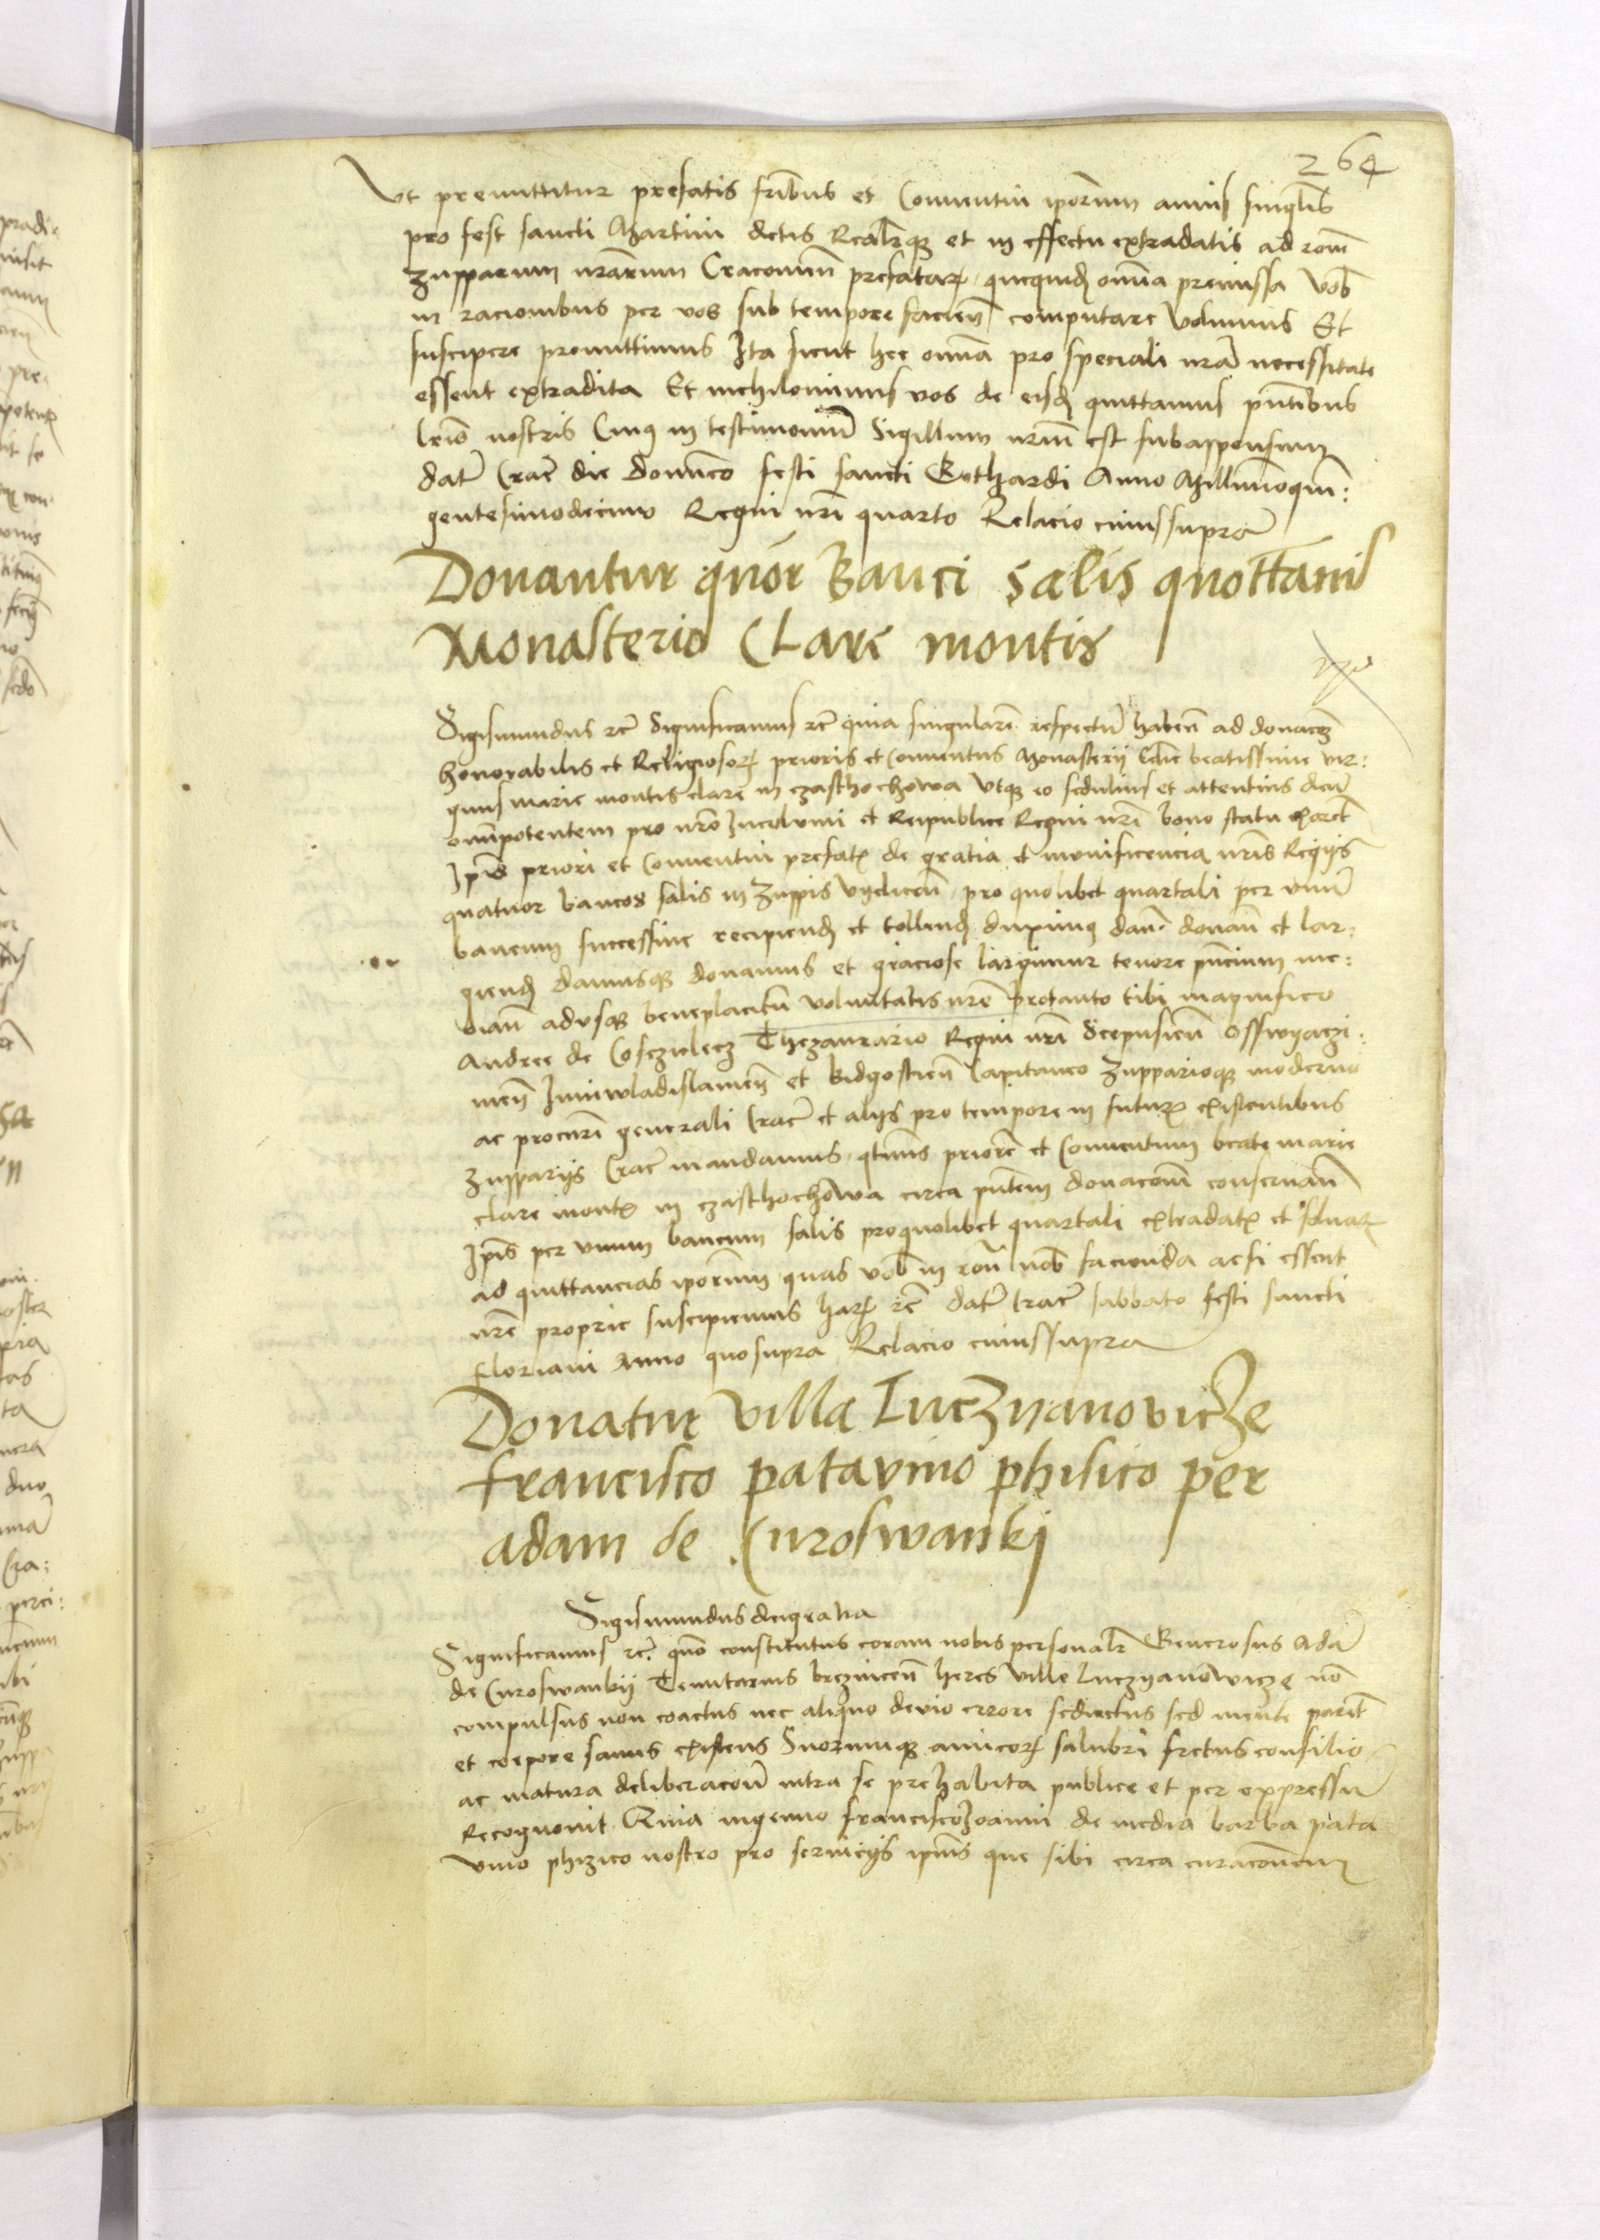 264
Ut premittitur prefatis fribus et Conventui ipsorum annis singulis
pro fest sancti Martini detis Realiterq et in effectu extradatis ad rom
zupparum nrarum Cracovien prefatar quequid omnia premissa vob
in racionibus per vos sub tempore facien computare volumus Et
suscipere promittimus Ita sicut hec omnia pro speciali nra necessitate
essent extradita Et nichilominus vos de eisd quittamus pntibus
lris nostris Cuius in testimonium Sigillum nrum est subappensum
dat Crac die dominico festi sancti Gothardi Anno Millimoquin:
gentesimodecimo Regni nri quarto Relacio cuiussupra
Donantur quor Banci salis quottanis
Monasterio Clare montis
Sigismundus rc Significamus rc quia singularem respectum haben ad donacoz
honorabilis et Religiosor prioris et Conventus Monasterij Edie beatissime vir:
ginis marie montis clare in czasthochowa Utq eo sedulius et attentius deum
omnipotentem pro nro Incolumi et Reipublice Regni nri bono statu
Ipis priori et Conventui prefat de gratia et munificencia nris Regijs
quatuor bancos salis in zuppis vyelicen pro quolibet quartali per unum
bancum successive recipiend et tollend duximus dan donan et lar:
giend damusq donamus et graciose largimur tenore pncium me:
dian adusq beneplacitum voluntatis nre Protanto tibi magnifico
Andree de Cosczyelecz Thezaurario Regni nri Scepusien Osswyaczi:
mien Iuniwladislavien et Bidgostien Capitaneo zupparioq moderno
ac procuri generali Crac et alijs pro tempore in futur existentibus
zupparijs Crac mandamus qtinus priorem et Conventum beate marie
clare mont in czasthochowa circa pntem donacom conservan
Ipis per unum bancum salis proquolibet quartali extradat et solvat
ad quittancias ipsorum quas vob in ron nob facienda acsi essent
nre proprie suscipiemus har rc dat Crac sabbato festi sancti
Floriani Anno quosupra Relacio cuiussupra
Donatur villa Luczyanovicze
francisco patavino phisico per
adam de Curoswanki
Sigismundus deigratia
Significamus rc quo constitutus coram nobis personalr Generosus Adam
de Curoswankij Tenutarius brzezinicen heres ville Luczyanowicze non
compulsus non coactus nec aliquo devio errore seductus sed mente parit
et corpore sanus existens Suorumq amicor salubri fretus consilio
ac matura deliberacon intra se prehabita publice et per expressum
Recognovit Quia ingenuo francisco Ioanni de media barba pata
vino phizico nostro pro servicijs ipius que sibi circa curaconem